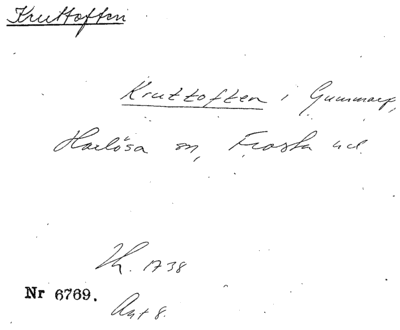 Kruttoften
Kruttoften i Gummarp,
Harlösa sn, Frosta hd
Lh. 1738
Nr 6769.
Akt 8.